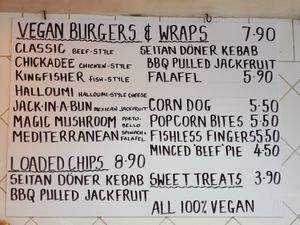 VEGAN BURGERS & WRAPS 7·90
CLASSIC BEEF-STYLE
CHICKADEE CHICKEN-STYLE
KINGFISHER FISH-STYLE
HALLOUMI HALLOUMI-STYLE CHEESE
JACK-IN-A-BUN MEXICAN JACKFRUIT
MAGIC MUSHROOM PORTO-BELLO
MEDITERRANEAN SPINACH+ FALAFEL
SEITAN DÖNER KEBAB
BBQ PULLED JACKFRUIT
FALAFEL 5·90
CORN DOG 5·50
POPCORN BITES 5·50
FISHLESS FINGERS 5·50
MINCED 'BEEF' PIE 4·50
LOADED CHIPS 8·90
SEITAN DÖNER KEBAB
BBQ PULLED JACKFRUIT
SWEET TREATS 3·90
ALL 100% VEGAN